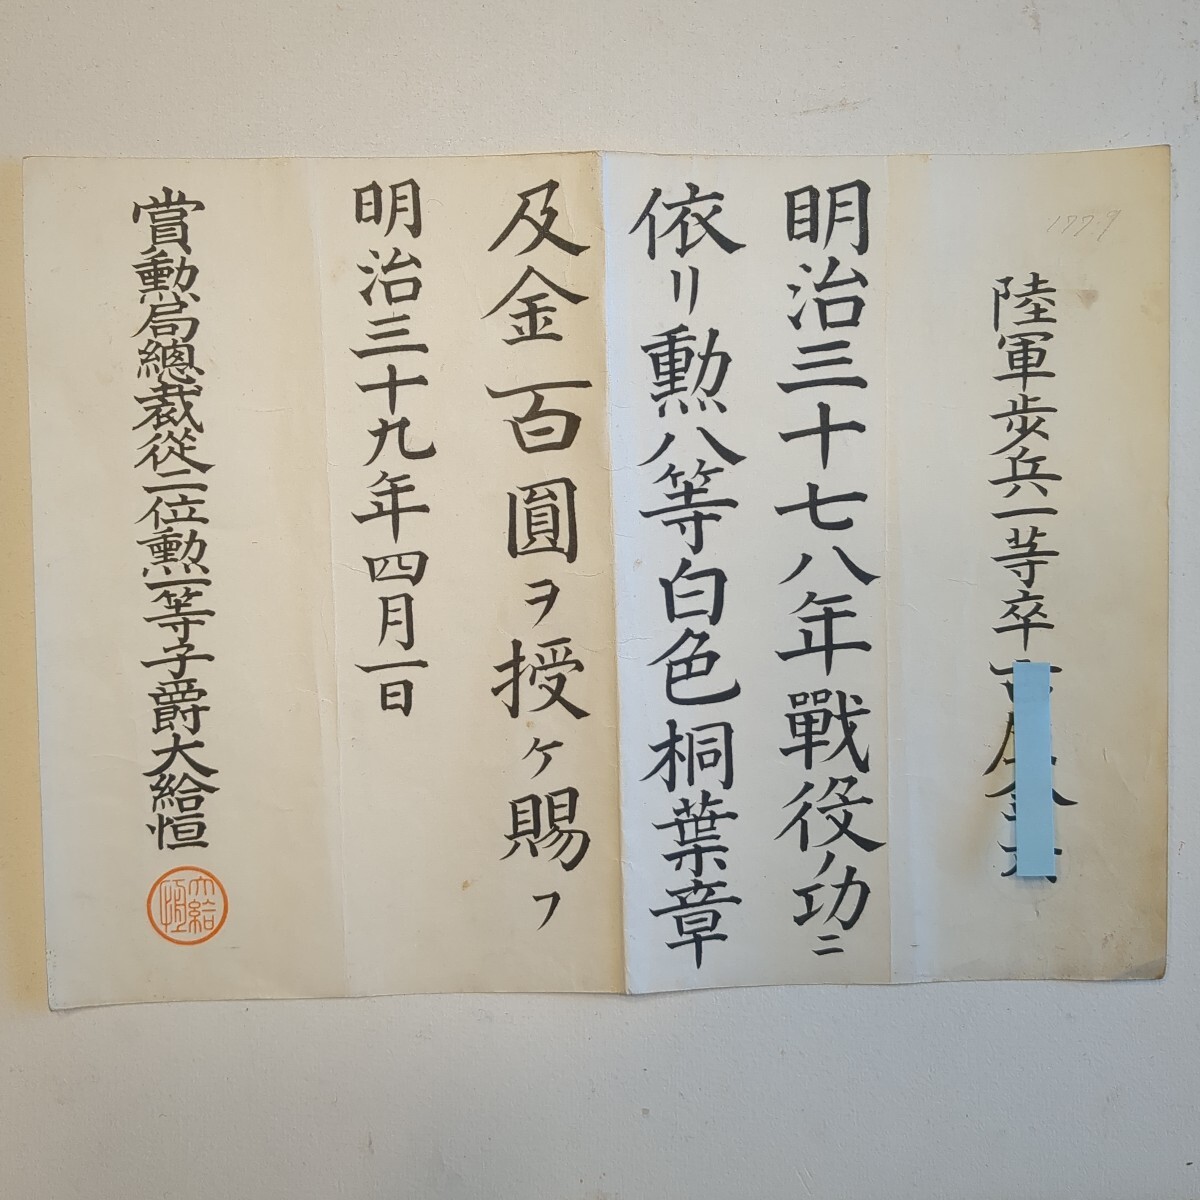 177.9
陸軍步兵一等卒
明治三十七八年戰役ノ功ニ
依リ勲八等白色桐葉章
及金百圓ヲ授ケ賜フ
明治三十九年四月一日
賞勲局總裁從二位勲一等子爵大給恒
大給恒